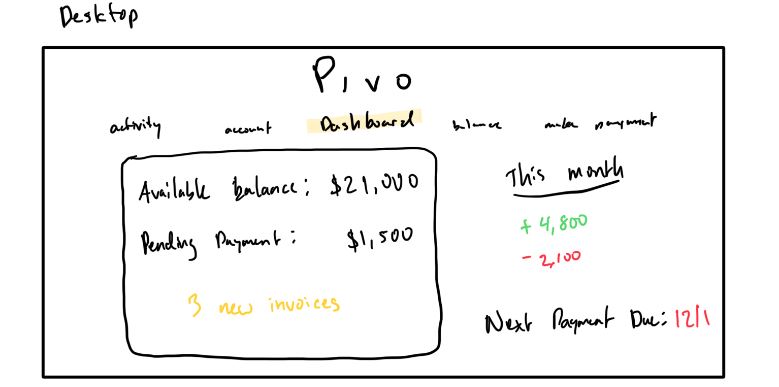 Desktop
Pivo
activity account Dashboard balance make payment
Available balance: $21,000
Pending Payment: $1,500
3 new invoices
This month
+ 4,800
- 2,100
Next Payment Due: 12/1